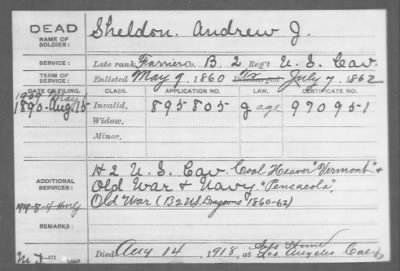 DEAD
NAME OF SOLDIER: Sheldon. Andrew J.
SERVICE: Late rank Farrier Co. B. 2 Reg't U. S. Cav.
TERM OF SERVICE: Enlisted May 9, 1860 Discharged July 7, 1862
DATE OF FILING. CLASS. APPLICATION NO. LAW. CERTIFICATE NO.
1890-Aug. 15 Invalid, 895805 g age 970951
Widow,
Minor,
ADDITIONAL SERVICES: H 2 U. S. Cav Coal Heaver "Vermont" &
Old War & Navy "Pensacola",
Old War (B 2 US Dragoons 1860-62)
REMARKS:
Died Aug 14, 1918, at Los Angeles Cal.